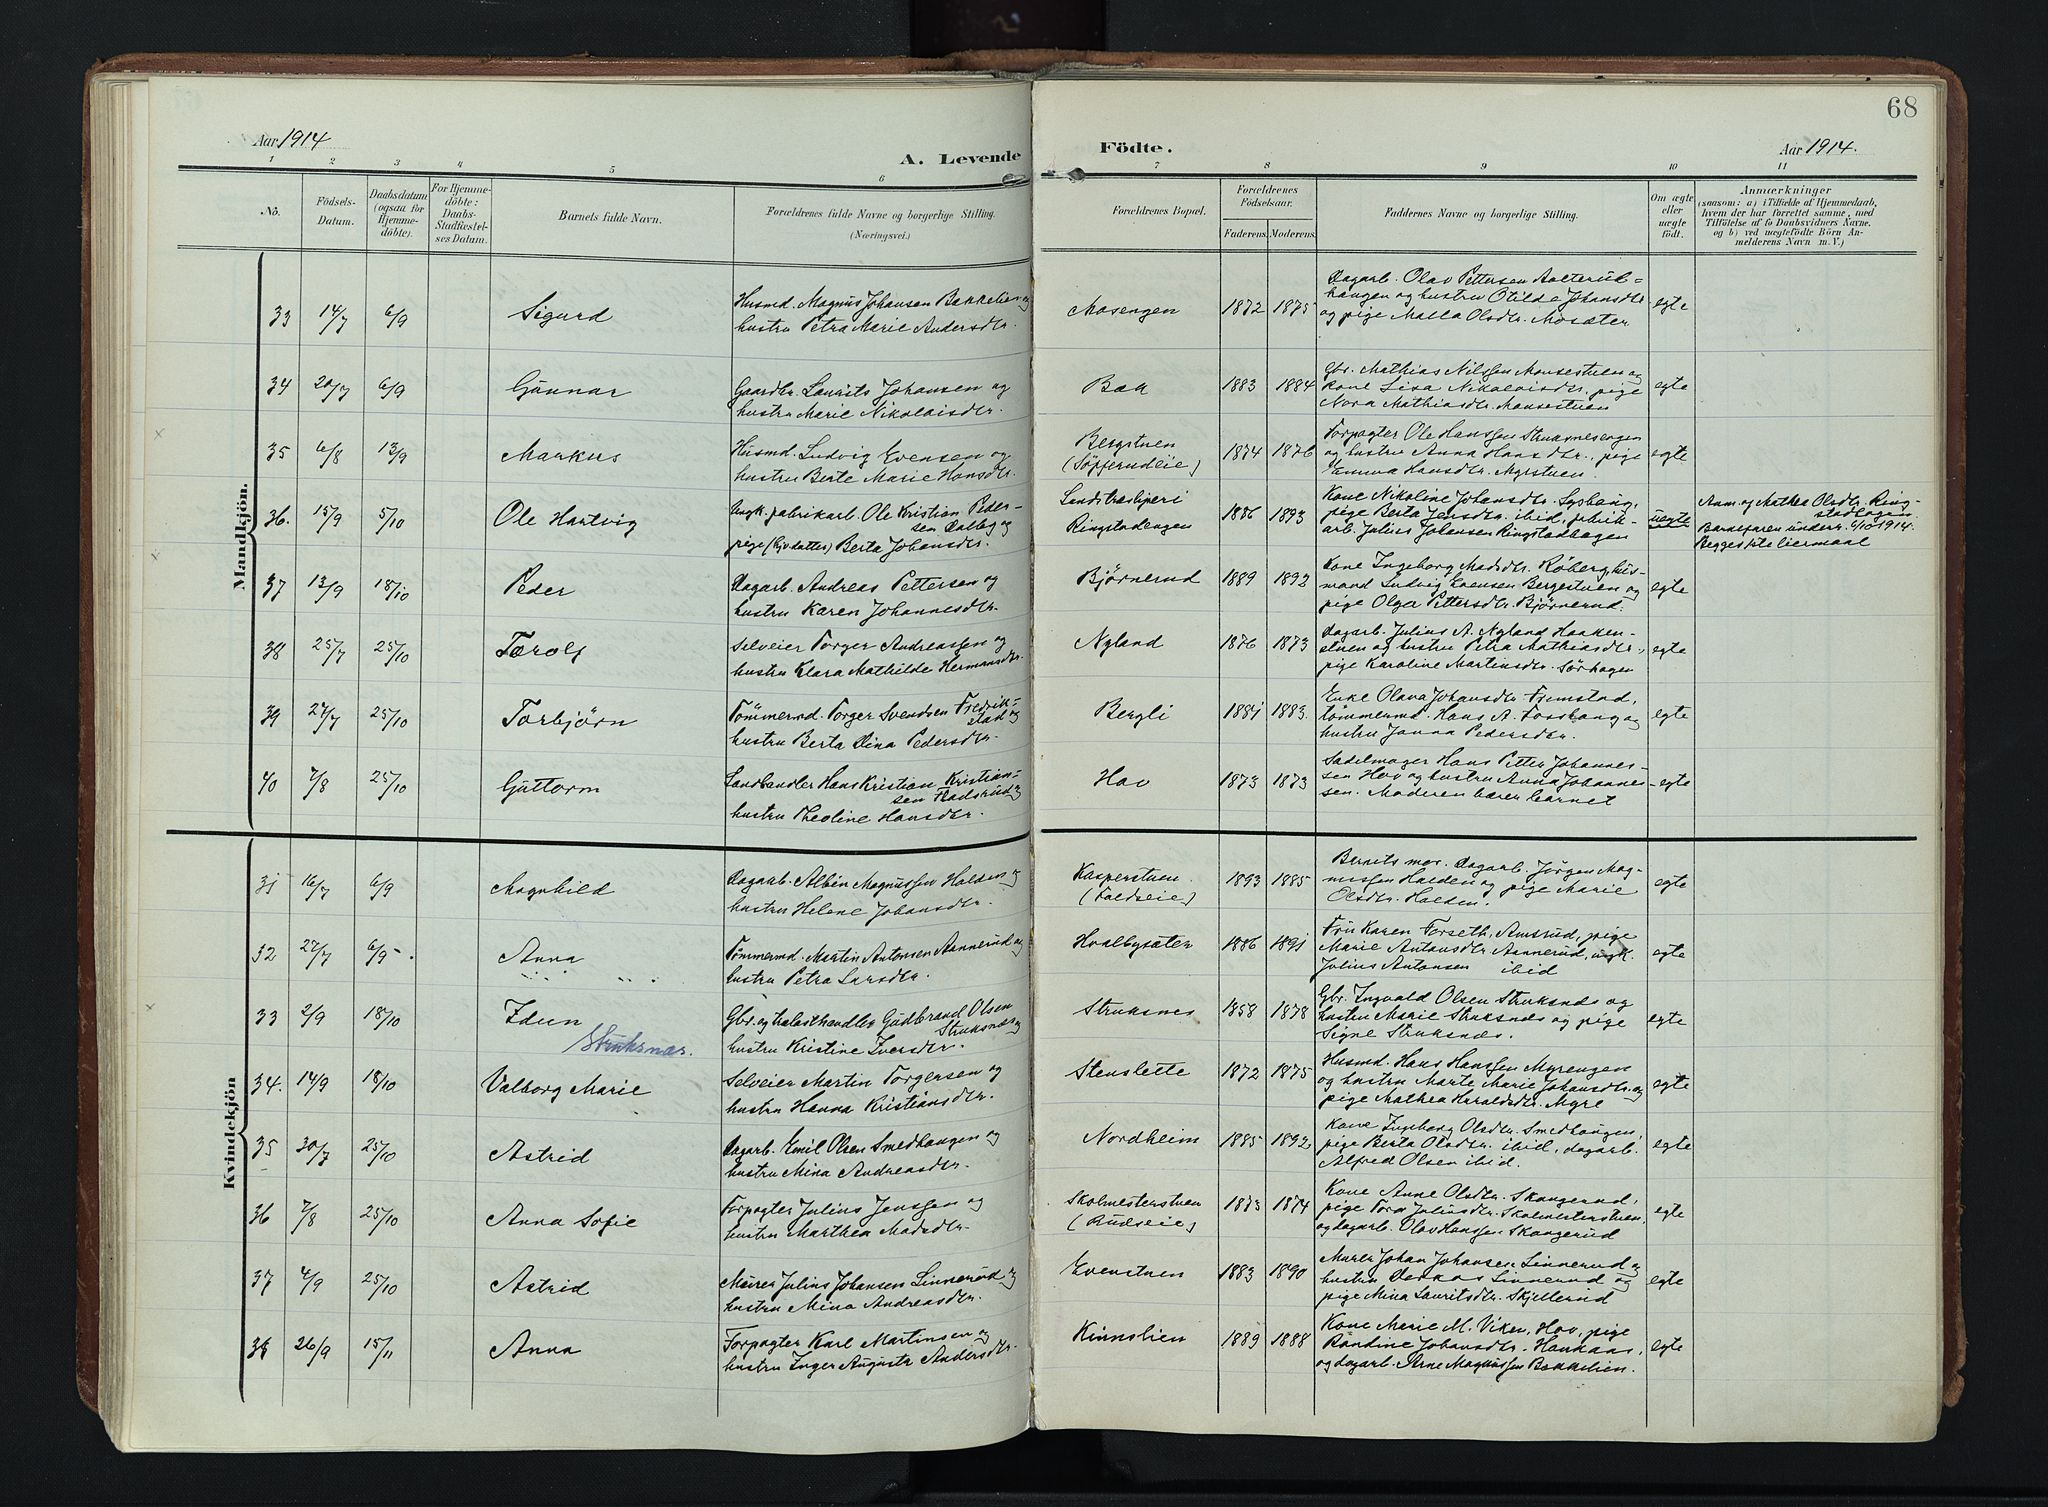 68
Aar 1914
A. Levende
Födte.
Aar 1914.
1 2 3 4 5 6 7 8 9 10 11
No.
Födsels-
Datum.
Daabsdatum
(ogsaa for
Hjemme-
döbte).
For Hjemme-
döbte:
Daabs-
Stadfæstel-
ses Datum.
Barnets fulde Navn.
Forældrenes fulde Navne og borgerlige Stilling.
(Næringsvei.)
Forældrenes Bopæl.
Forældrenes
Födselsaar.
Faderens. Moderens.
Faddernes Navne og borgerlige Stilling.
Om ægte
eller
uægte
födt.
Anmærkninger
(saasom: a) i Tilfælde af Hjemmedaab,
hvem der har forrettet samme, med
Tilföielse af to Daabsvidners Navne.
og b) ved uægtefödte Börn An-
melderens Navn m. V.)
Mandkjön.
33 14/7 6/9 Sigurd
Husmd. Magnus Johansen Bakkelien og
hustru Petra Marie Andersdtr.
Mosengen 1872 1875
Dagarb. Olav Pettersen
haugen og hustru Otilde Johansdtr
og pige Malla Olsdtr. Mosæter
egte
34 20/7 6/9 Gunnar
Gaardbr. Laurits Johansen og
hustru Marie Nikolaisdtr.
Bak 1883 1884
Gbr. Mathias Nilssen Monsestuen og
kone Lisa Nikolaisdtr, pige
Nora Mathiasdtr. Monsestuen
egte
35 6/8 13/9 Markus
Husmd. Ludvig Evensen og
hustru Berte Marie Hansdtr.
Bergstuen
(Söpferudeie) 1874 1876
Forpagter Ole Hanssen Struksnesengen
og hustru Anna Hansdtr., pige
Emma Hansdtr. Myrstuen
egte
36. 15/9 5/10 Ole Hartvig
Ungk. fabrikarb. Ole Kristian Peder-
sen Dalby og
pige (Gjvdatter) Berta Johansdtr.
Landstræsliperi
Ringstadengen 1886 1893
Kone Nikoline Johansdtr. Lysberg,
pige Berta Jensdtr. ibid, fabrik-
arb. Julius Johansen Ringstadhagen
uegte
Anm. og Mathea Olsdtr. Ring-
stadhagen.
Barnefaren underr. 6/10 1914.
Begges 1ste leiermaal
37 13/9 18/10 Peder
Dagarb. Andreas Pettersen og
hustru Karen Johannesdtr.
Björnerud 1889 1892
Kone Ingeborg Madsdtr. Röberg hus-
mand Ludvig Evensen Bergestuen og
pige Olga Pettersdtr. Björnerud.
egte
38 25/7 25/10 Torolf
Selveier Torger Andreassen og
hustru Klara Mathilde Hermansdtr.
Nyland 1876 1873
Dagarb. Julius A. Nyland Haaken-
stuen og hustru Petra Mathiasdtr.,
pige Karoline Martinsdtr. Sörhagen
egte
39 27/7 25/10 Torbjörn
Tömmermd. Torger Svendsen Fredrik-
stad og
hustru Berta Dina Pedersdtr.
Bergli 1881 1883.
Enke Olava Johansdtr. Fjemstad,
tömmermd. Hans A. Fossberg og
hustru Janna Pedersdtr.
egte
40 7/8 25/10 Guttorm
Landhandler Hans Kristian Kristian-
sen Fladsrud og
hustru Theoline Hansdtr.
Hov 1873 1873
Sadelmager Hans Petter Johannes-
sen Hov og hustru Anna Johannes-
sen. Moderen bærer barnet
egte
Kvindekjön
31 16/7 6/9 Magnhild
Dagarb. Albin Magnussen Halden og
hustru Helene Johansdtr.
Kasperstuen
(Faldseie) 1893 1885
Barnets mor. Dagarb. Jörgen Mag-
nussen Halden og pige Marie
Olsdtr. Halden.
egte
32 27/7 6/9 Anna
Tömmermd. Martin Antonsen Aannerud og
hustru Petra Larsdtr.
Hvalbysæter 1886 1891
Fru Karen Forseth, Amsrud, pige
Marie Antonsdtr Aannerud, ungk.
Julius Antonsen ibid
egte
33 2/9 18/10 Idun
Struksnæs.
Gbr. og trælasthandler Gudbrand Olsen
Struksnæs og
hustru Kristine Iversdtr.
Struksnes 1858 1878
Gbr. Ingvald Olsen Struksnæs og
hustru Marie Struksnæs og pige
Signe Struksnæs.
egte
34. 14/9 18/10 Valborg Marie
Selveier Martin Torgersen og
hustru Hanna Kristiansdtr.
Stenslette 1872 1875
Husmd. Hans Hanssen Myrengen
og hustru Marte Marie Johansdtr. og
pige Mathea Haraldsdtr. Myre
egte
35 30/7 25/10 Astrid
Dagarb. Emil Olsen Smedhaugen og
hustru Mina Andreasdtr.
Nordheim 1885 1892
Kone Ingeborg Olsdtr. Smedhaugen,
pige Berta Olsdtr. ibid, dagarb.
Alfred Olsen ibid.
egte
36 7/8 25/10 Anna Sofie
Forpagter Julius Jenssen og
hustru Marthea Madsdtr.
Skolmesterstuen
(Rudseie) 1873 1874
Kone Anne Olsdtr. Skangerud,
pige Tora Juliusdtr. Skolmesterstuen,
og dagarb. Olav Hanssen Skangerud
egte
37 4/9 25/10 Astrid
Murer Julius Johansen Linnerud og
hustru Mina Andreasdtr.
Evenstuen 1883 1890
Murer Johan Johansen Linnerud og
hustru Dorkas Linnerud og
pige Mina Lauritsdtr. Skjellerud
egte
38 26/9 15/11 Anna
Forpagter Karl Martinsen og
hustru Inger Augusta Andersdtr.
Kinnslien 1889 1888
Kone Marie M. Viken, Hov, pige
Randine Johansdtr. Haukaas,
og dagarb. Arne Magnussen Bakkelien.
egte